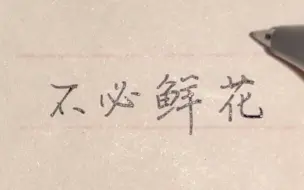 不必鲜花